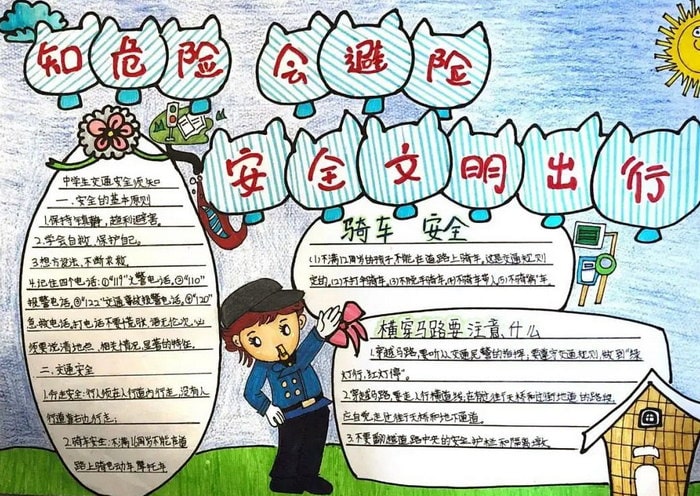 知危险 会避险
安全文明出行
中学生交通安全须知
一.安全的基本原则
1.保持镇静,趋利避害。
2.学会自救,保护自己。
3.想方设法,不断求救。
4.记住四个电话:①"119"火警电话。②"110"
报警电话。③"122"交通事故报警电话。④"120"
急救电话。打电话不要慌张、语无伦次,必
须要说清地点、相关情况、显著的特征。
二.交通安全
1.行走安全:行人须在人行道内行走,没有人
行道靠右边行走;
2.骑车安全:不满16周岁不能在道
路上骑电动车、摩托车
骑车 安全
(1)不满12周岁的孩子不能在道路上骑车。这是交通规则
定的。(2)不打手骑车。(3)不脱手骑车。(4)不骑车带人。(5)不骑"病"车。
横穿马路要注意什么
1.穿越马路,要听从交通民警的指挥;要遵守交通规则,做到"绿
灯行,红灯停"。
2.穿越马路,要走人行横道线;在有过街天桥和过街地道的路段,
应自觉走过街天桥和地下通道。
3.不要翻越道路中央的安全护栏和隔离墩。